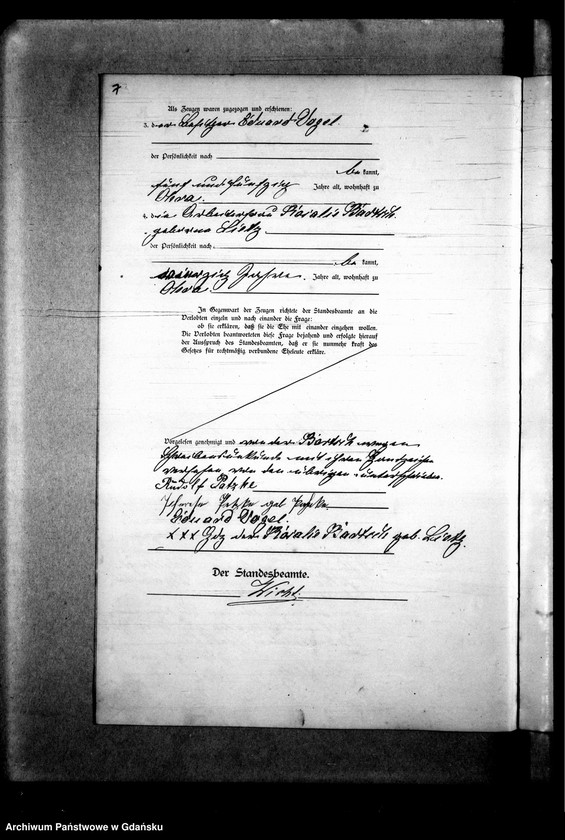 7
Als Zeugen waren zugezogen und erschienen:
3. der Besitzer Eduard Vogel
der Persönlichkeit nach
be kannt,
fünf und fünfzig Jahre alt, wohnhaft zu
Ohra.
4. die Arbeiterfrau Rosalie Bartsch
geborene Lietz
der Persönlichkeit nach
be kannt,
vierzig Jahre. Jahre alt, wohnhaft zu
Ohra.
In Gegenwart der Zeugen richtete der Standesbeamte an die
Verlobten einzeln und nach einander die Frage:
ob sie erklären, daß sie die Ehe mit einander eingehen wollen.
Die Verlobten beantworteten diese Frage bejahend und erfolgte hierauf
der Ausspruch des Standesbeamten, daß er sie nunmehr kraft des
Gesetzes für rechtmäßig verbundene Eheleute erkläre.
Vorgelesen genehmigt und von der Bartsch wegen
Schreibensunkunde mit ihrem Handzeichen
versehen von den übrigen unterschrieben.
Rudolf Patzke
geb
Eduard Vogel.
XXX Hdz der Rosalie Bartsch geb. Lietz.
Der Standesbeamte.
Archiwum Państwowe w Gdańsku